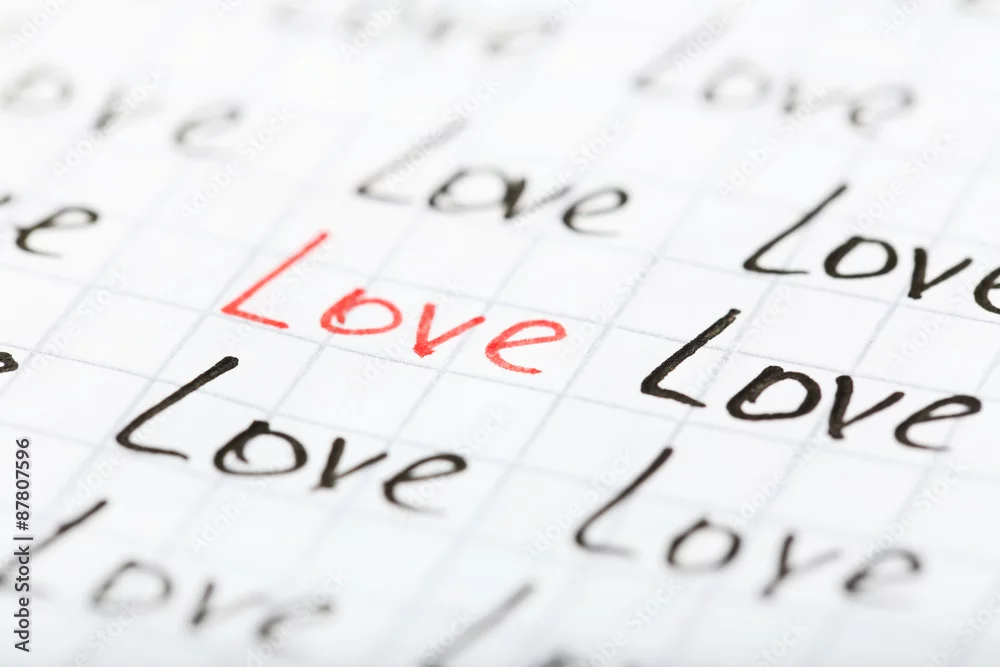 Love
ove
Love
Love
e
Love
Love
Love
Love
Love
Adobe Stock | #87807596